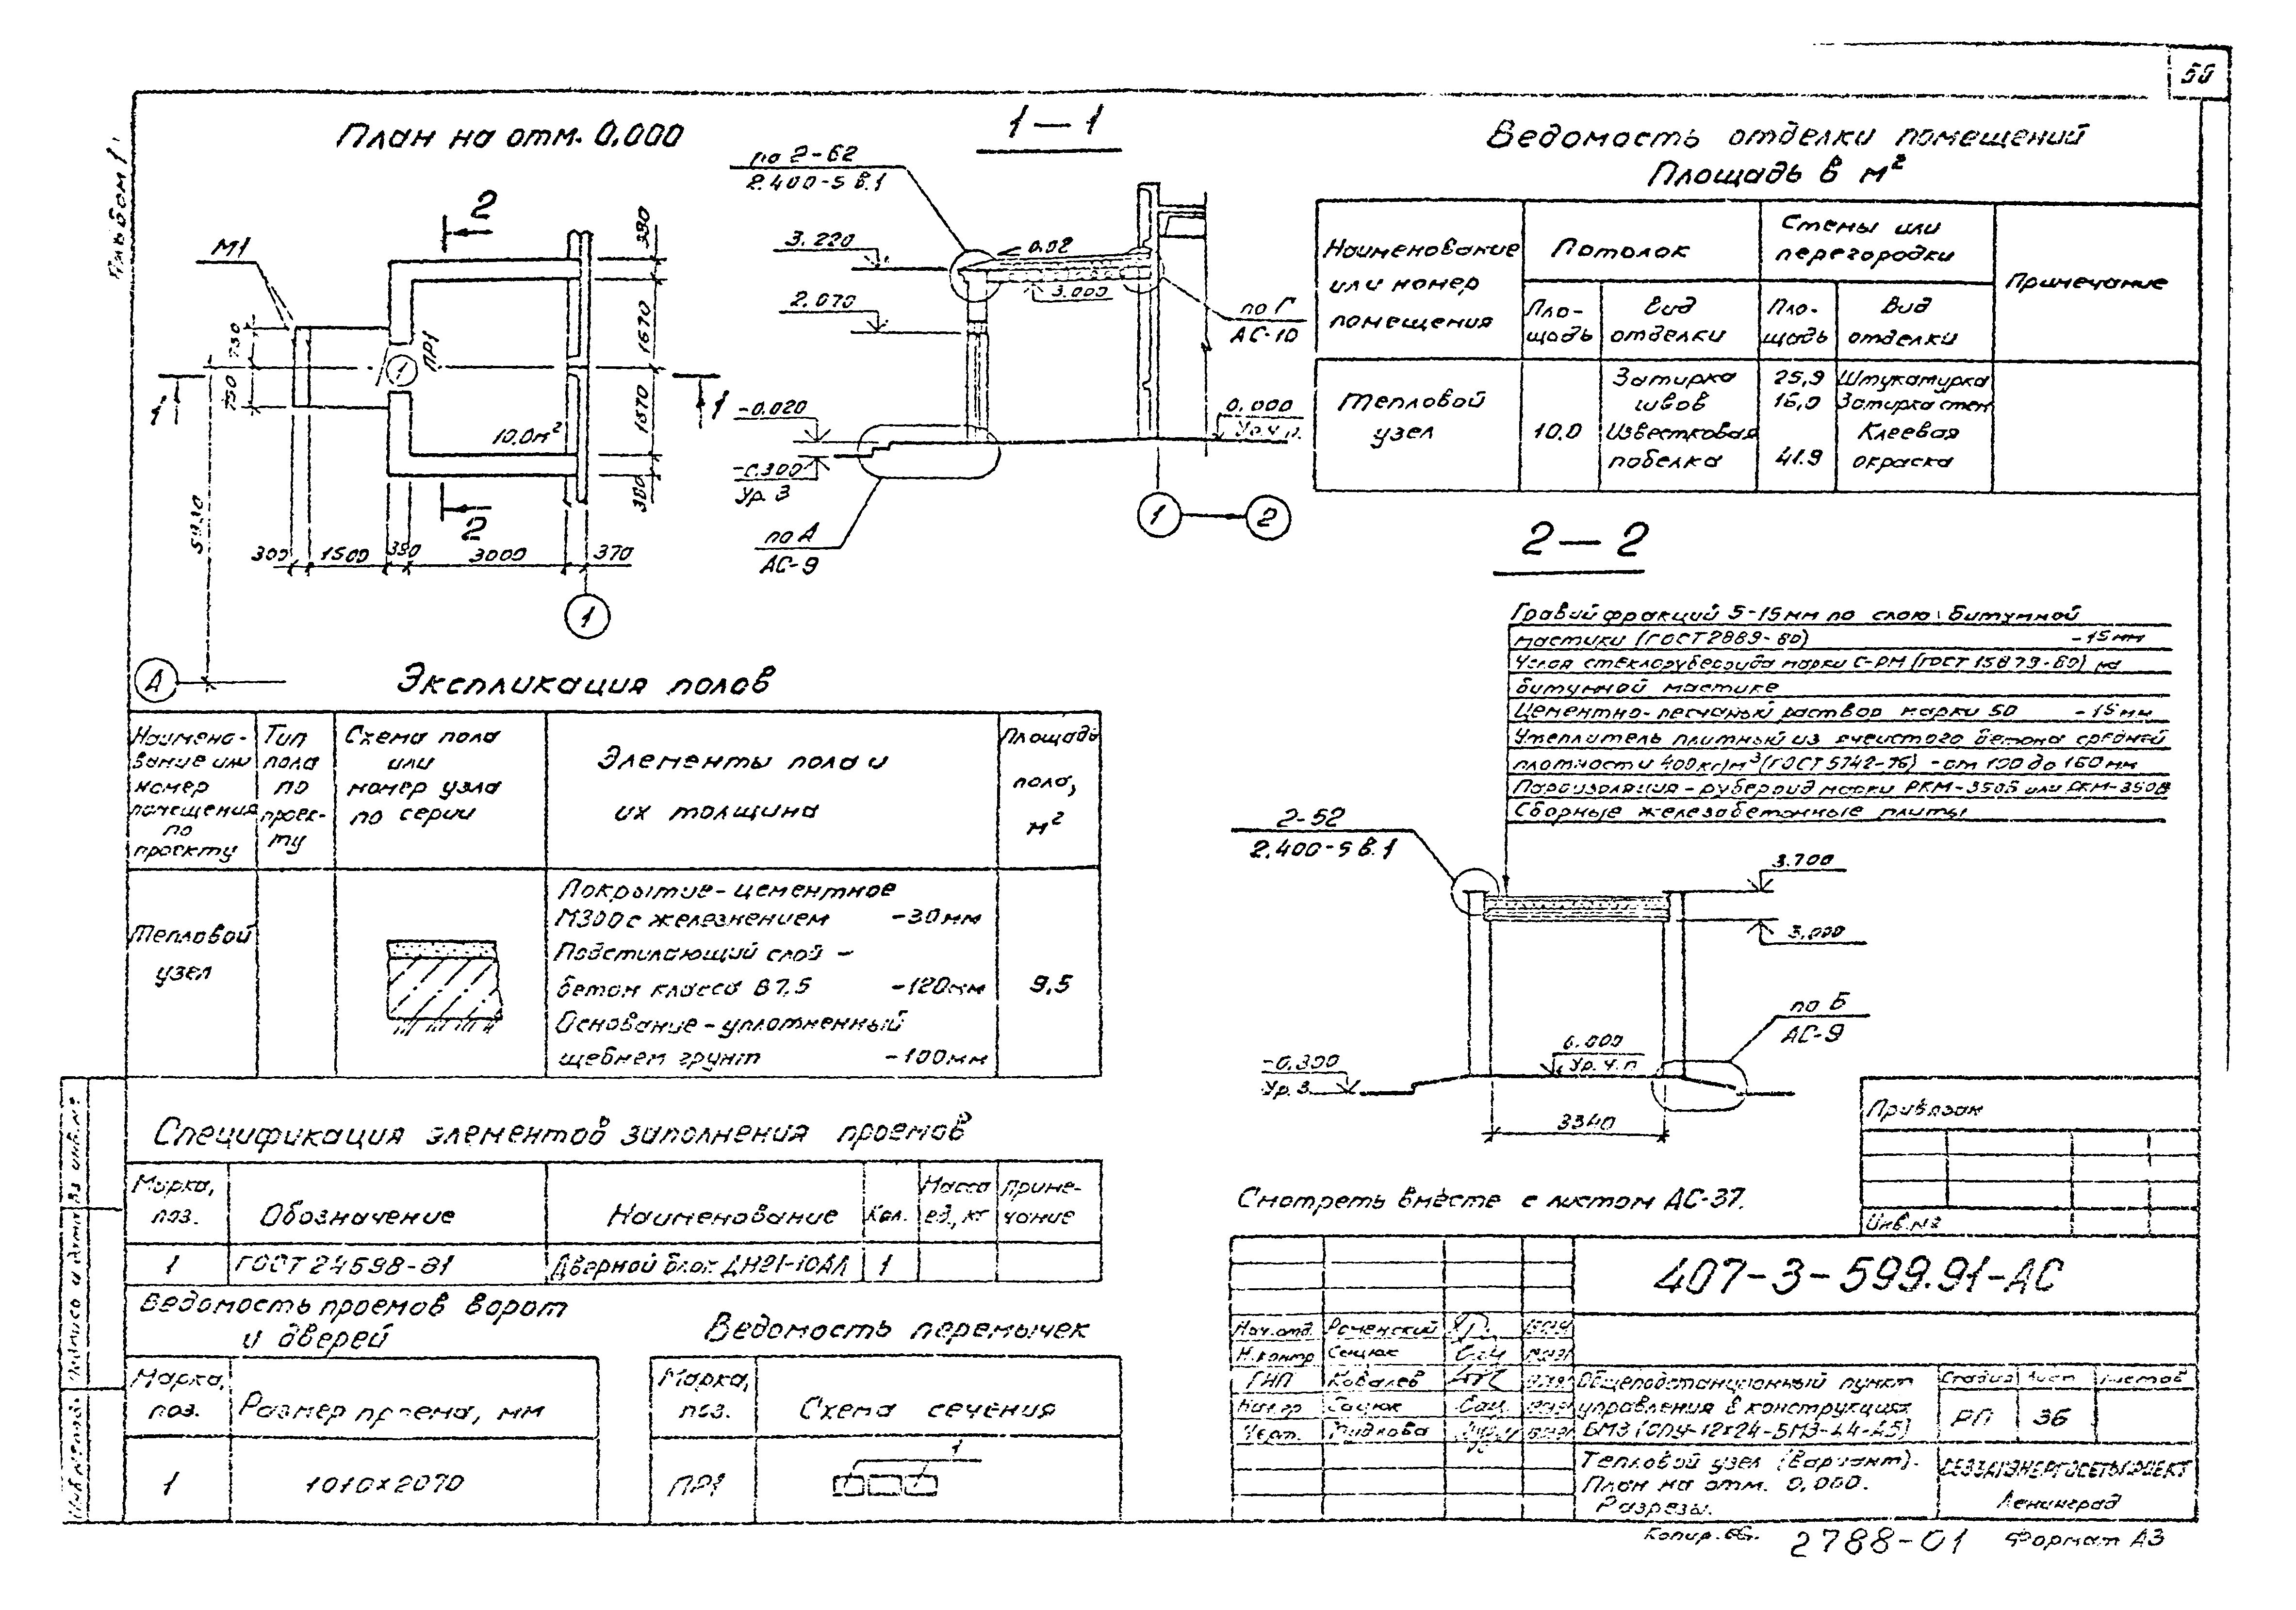 50
Альбом 1
План на отм. 0,000
2
М1
380
1670
750
750
ПР1
1
1
1
1670
10.0м²
380
5930
2
300
1500
380
3000
370
1
А
1—1
по 2-62
2.400-5 в.1
3.220
0.02
2.070
3.000
по Г
АС-10
-0.020
0.000
Ур.ч.п.
-0.300
Ур. З
по А
АС-9
1
2
Ведомость отделки помещений
Площадь в м²
Наименование или номер помещения
Потолок
Стены или перегородки
Примечание
Пло-щадь
Вид отделки
Пло-щадь
Вид отделки
Тепловой узел
10,0
Затирка швов
Известковая побелка
25,9
16,0
41.9
Штукатурка
Затирка стен
Клеевая окраска
2—2
Гравий фракций 5-15мм по слою битумной
мастики (ГОСТ 2889-80) -15мм
4 слоя стеклорубероида марки С-РМ (ГОСТ 15879-80) на
битумной мастике
Цементно-песчаный раствор марки 50 -15мм
Утеплитель плитный из ячеистого бетона средней
плотности 400кг/м³ (ГОСТ 5742-76) -от 100 до 160мм
Пароизоляция-рубероид марки РКМ-350Б или РКМ-350В
Сборные железобетонные плиты
2-52
2.400-5 в.1
3.700
3.000
по Б
АС-9
0.000
Ур.ч.п
-0.300
Ур.З
3340
Смотреть вместе с листом АС-37.
Экспликация полов
Наимено-вание или номер помещения по проекту
Тип пола по проек-ту
Схема пола или номер узла по серии
Элементы пола и их толщина
Площадь пола, м²
Тепловой узел
Покрытие-цементное
М300 с железнением -30мм
Подстилающий слой -
бетон класса В7,5 -120мм
Основание-уплотненный
щебнем грунт -100мм
9,5
Спецификация элементов заполнения проемов
Марка, поз.
Обозначение
Наименование
Кол.
Масса ед., кг
Приме-чание
1
ГОСТ 24698-81
Дверной блок ДН21-10АЛ
1
Ведомость проемов ворот
и дверей
Марка, поз.
Размер проема, мм
1
1010×2070
Ведомость перемычек
Марка, поз.
Схема сечения
ПР1
1
Привязан
Инв.№
407-3-599.91-АС
Нач.отд. Роменский
Н.контр Сацюк
ГИП Ковалев
Сацюк
Черт.
Общеподстанционный пункт
управления в конструкциях
БМЗ (ОПУ-12×24-БМЗ-А4-А5)
Стадия
Лист
Листов
РП
36
Тепловой узел (Вариант).
План на отм. 0,000.
Разрезы.
СЕВЗАПЭНЕРГОСЕТЬПРОЕКТ
Ленинград
Копир.
2788-01
Формат А3
Инв.№ подл.
Подпись и дата
Вз инв.№